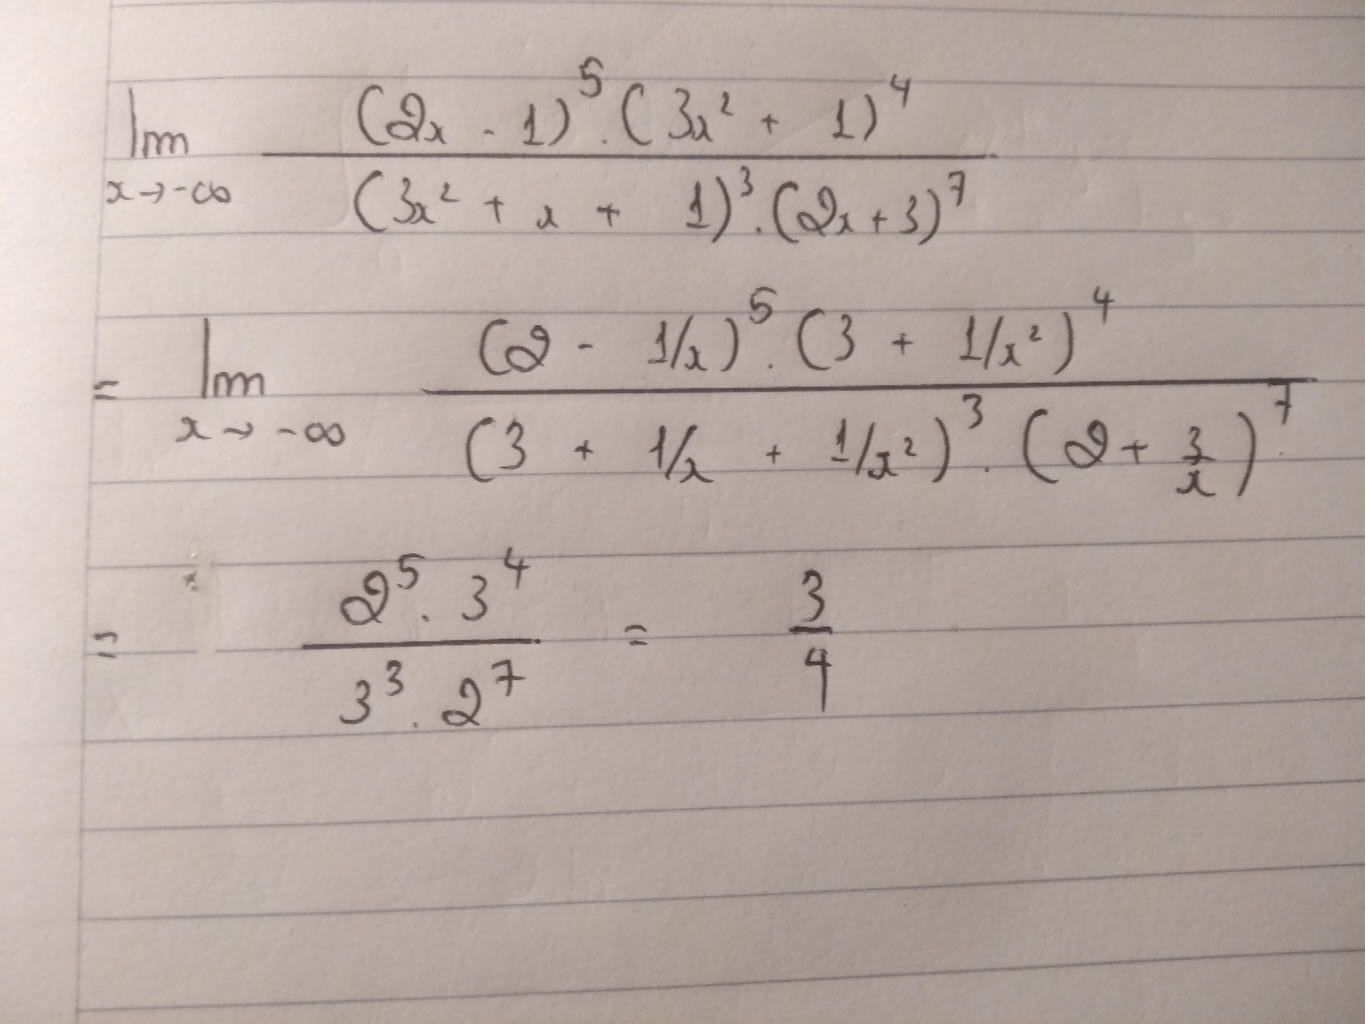 lim x→-∞ (2x - 1)⁵ . (3x² + 1)⁴ / (3x² + x + 1)³ . (2x + 3)⁷
= lim x→-∞ (2 - 1/x)⁵ . (3 + 1/x²)⁴ / (3 + 1/x + 1/x²)³ . (2 + 3/x)⁷
= 2⁵ . 3⁴ / 3³ . 2⁷ = 3/4